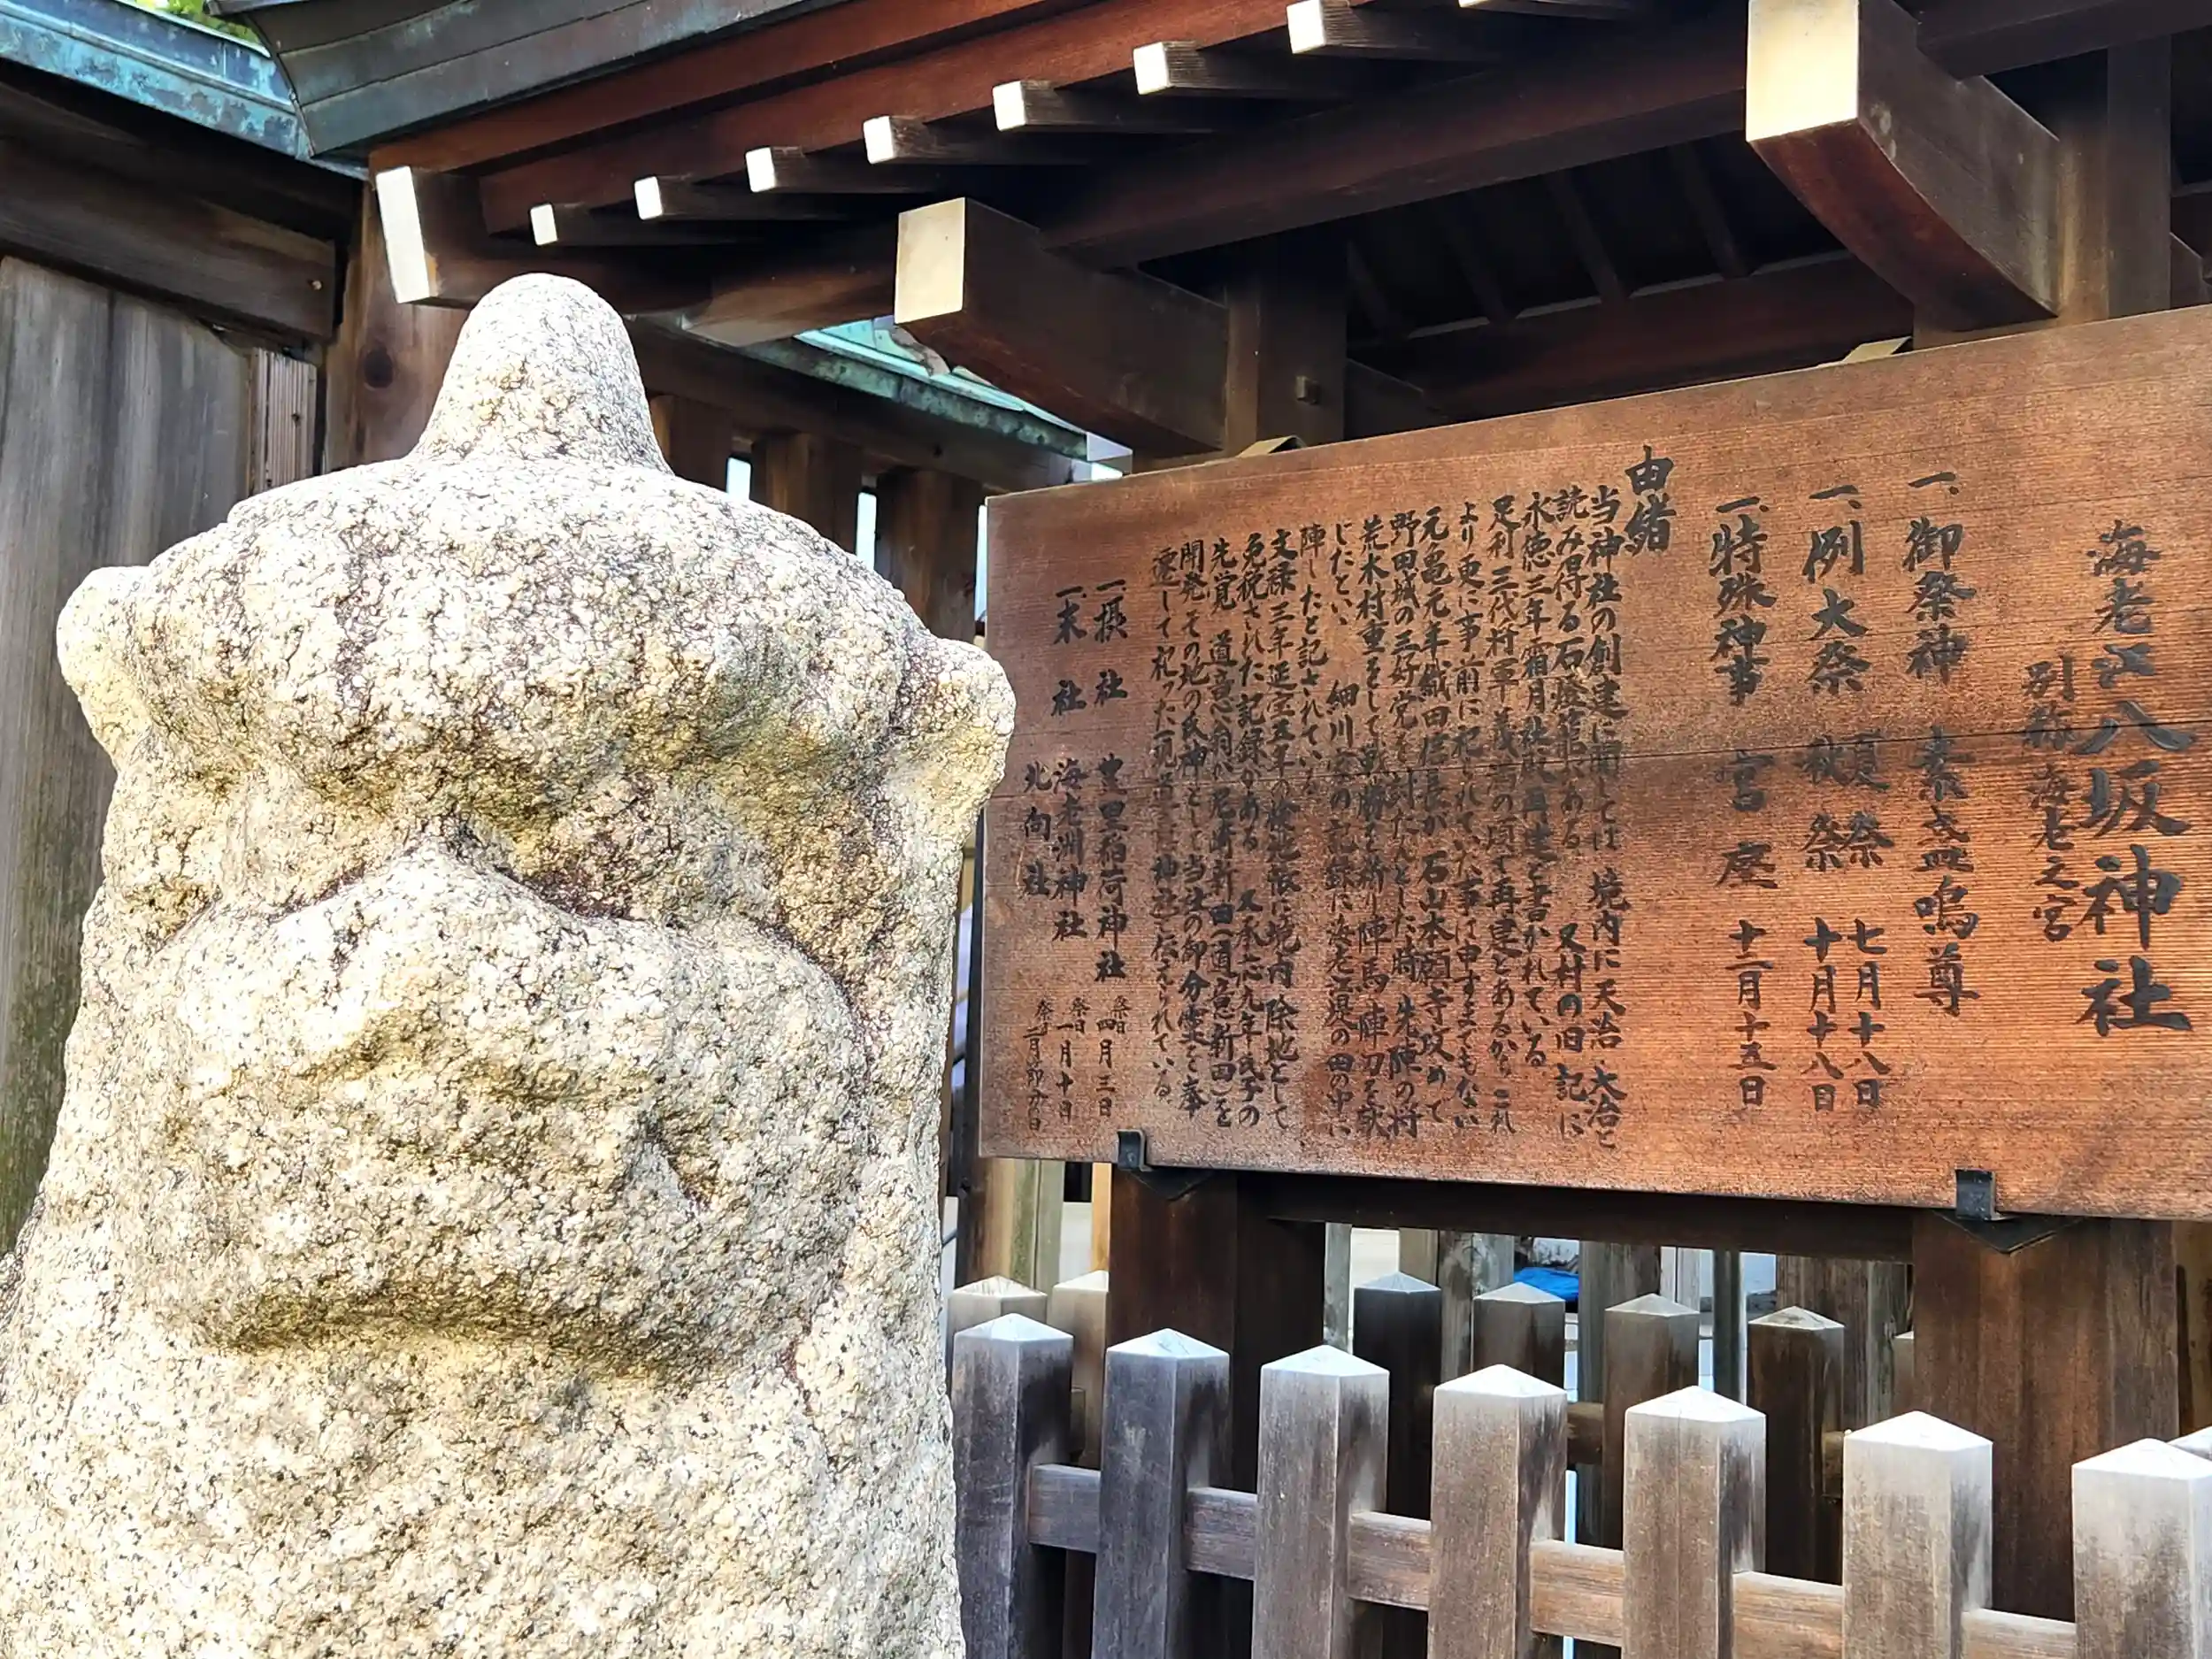 海老江八坂神社
別称 海老之宮
一、御祭神 素盞嗚尊
一、例大祭 夏祭 七月十八日
秋祭 十月十八日
一、特殊神事 宮座 十二月十五日
由緒
当神社の創建に関しては 境内に天治 大治と
読み得る石燈籠がある 又村の旧記に
永徳三年霜月社殿再建と書かれている
足利三代将軍義満の頃で再建とあるから これ
より更に事前に祀られていた事は申すまでもない
元亀元年織田信長が 石山本願寺攻めて
野田城の三好党を討たんとした時 先陣の将
荒木村重をして 戦勝を祈り 陣馬 陣刀を献
じたといい 細川 の記録に海老江堤の田の中に
陣したと記されている
文禄三年延宝五年の検地帳に境内 除地として
免税された記録がある 又承応九年氏子の
先覚 道意翁が尼崎新田(道意新田)を
開発 その地の氏神として 当社の御分霊を奉
遷して祀った 道意神社と伝えられている
一、摂社 豊里稲荷神社 祭日 四月三日
一、末社 海老洲神社 祭日 一月十日
北向社 祭日 二月節分の日